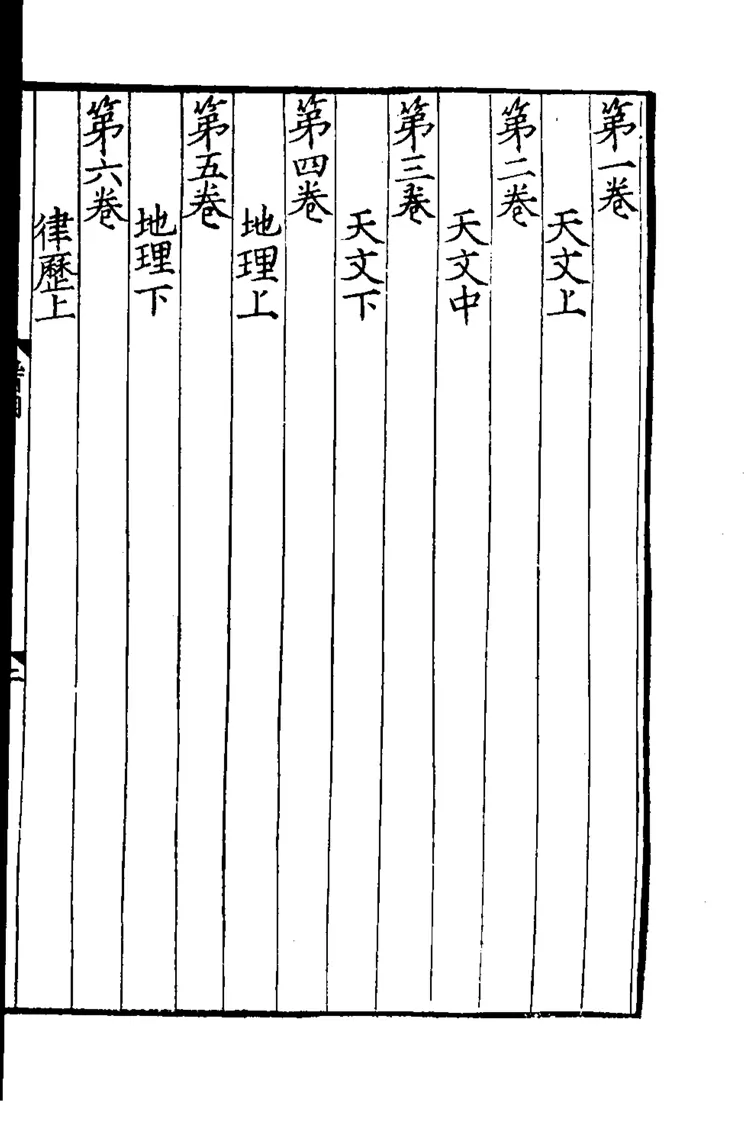 第一卷
天文上
第二卷
天文中
第三卷
天文下
第四卷
地理上
第五卷
地理下
第六卷
律歷上
二